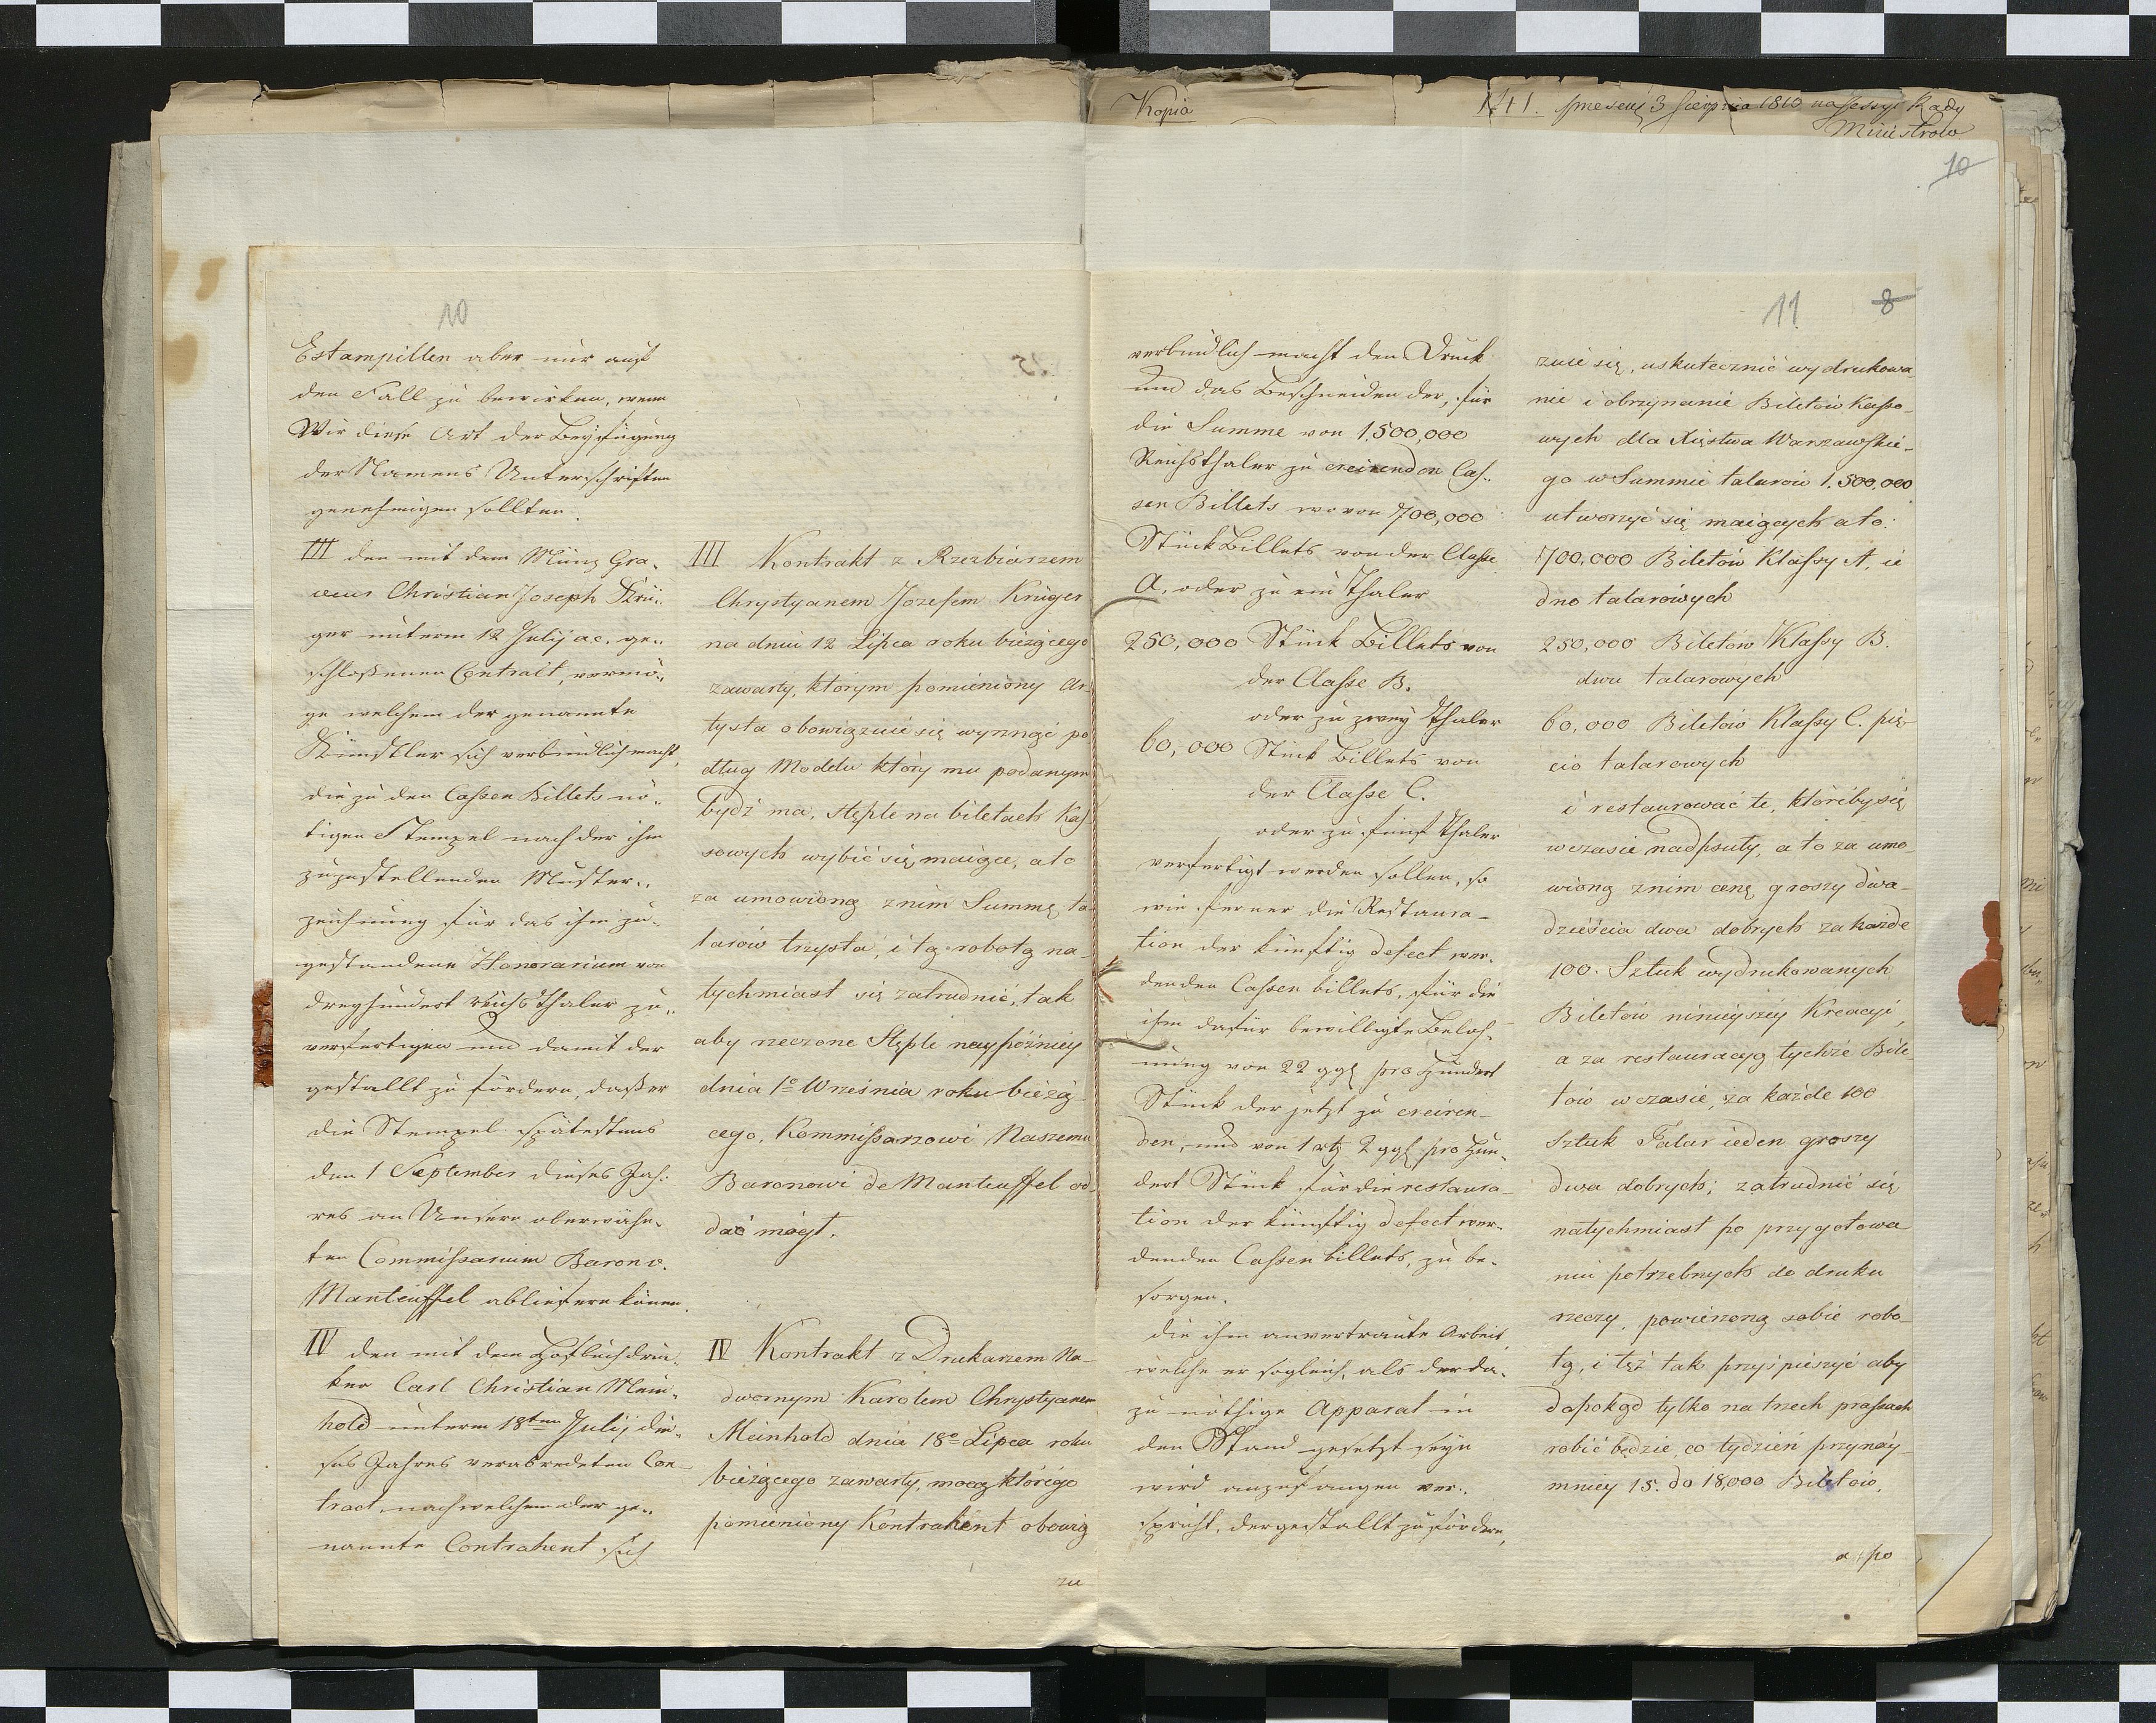 Kopia
141. 3 Sierpnia 1810 na sessyi Rady
Ministrow
10
10
Estampillen aber nur auf
den Fall zu bewirken, wenn
Wir diese Art der Beyfügung
der Namens Unterschriften
genehmigen sollten.
III den mit dem Münz Gra„
veur Christian Joseph Krü„
ger unterm 12 Julij a.c. ge„
schloßenen Contract, vermö„
ge welchem der genannte
Künstler sich verbindlich macht,
die zu den Cassen Billets nö„
tigen Stempel nach der ihm
zuzustellenden Muster„
zeichnung für das ihm zu„
gestandene Honorarium von
dreyhundert reichsthaler zu„
verfertigen und damit der
gestallt zu fördern, daß er
die Stempel spätestens
den 1 September dieses Jah„
res an Unsern oberwähn„
ten Commissarium Baron v.
Manteuffel abliefern könne.
IV den mit dem Hofbuchdru„
cker Carl Christian Mein„
hold unterm 18ten Julij die„
ses Jahres verabredeten Con„
tract, nach welchem der ge„
nannte Contrahent sich
III Kontrakt z Rzezbiarzem
Chrystyanem Jozefem Krüger
na dniu 12 Lipca roku bieżącego
zawarty, którym pomieniony Ar
tysta obowięzuie się wyrznąć po
dług Modelu który mu podanym
bydź ma, stęple na biletach Kas
sowych wybić się maiące, a to
za umowioną z nim Summę ta
larów trzysta, i tą robotą na
tychmiast się zatrudnić, tak
aby rzeczone Stęple naypóźniey
dnia 1o Września roku bieżą
cego, Kommissarzowi Naszemu
Baronowi de Manteuffel od
dać mógł.
IV Kontrakt z Drukarzem Na
dwornym Karolem Chrystyanem
Meinhold dnia 18o Lipca roku
bieżącego zawarty, mocą którego
pomieniony Kontrahent obowią
zu
11
8
verbindlich macht den Druck
und das Beschneiden der, für
die Summe von 1,500,000
Reichsthaler zu creirenden Cas„
sen Billets wovon 700,000
Stück Billets von der Classe
A. oder zu ein Thaler
250,000 Stück Billets von
der Classe B.
oder zu zwey Thaler
60,000 Stück Billets von
der Classe C.
oder zu fünf Thaler
verfertigt werden sollen, so
wie ferner die Restaura„
tion der künftig defect wer„
denden Cassen billets, für die
ihm dafür bewilligte Beloh„
nung von 22 ggl pro Hundert
Stück der jetzt zu creiren„
den, und von 1 rth 2 ggl pro Hun„
dert Stück für die restaura„
tion der künftig defect wer„
denden Cassen billets, zu be„
sorgen.
die ihm anvertraute Arbeit
welche er sogleich, als der da„
zu nöthige Apparat in
den Stand gesetzt seyn
wird anzufangen ver„
spricht, dergestallt zu fördern,
zuie się, uskutecznić wydrukowa
nie i obrzynanie Biletów Kasso
wych dla Xięstwa Warszawskie
go w Summie talarow 1,500,000
utworzyć się maiących a to:
700,000 Biletów Klassy A. ie
dno talarowych
250,000 Biletow Klassy B.
dwu talarowych
60,000 Biletów Klassy C. pię
cio talarowych
i restaurować te, któreby się
w czasie nadpsuły, a to za umo
wioną z nim cenę groszy dwa
dzieścia dwa dobrych za każde
100. Sztuk wydrukowanych
Biletów ninieyszey Kreacyi,
a za restauracyą tychże Bile
tów w czasie, za każde 100
Sztuk Talar ieden groszy
dwa dobrych; zatrudnić się
natychmiast po przygotowa
niu potrzebnych do druku
rzeczy, powierzoną sobie robo
tą, i też tak przyspieszyć aby
dopokąd tylko na trzech prassach
robić będzie, co tydzień przynay
mniey 15. do 18,000 Biletów,
a po